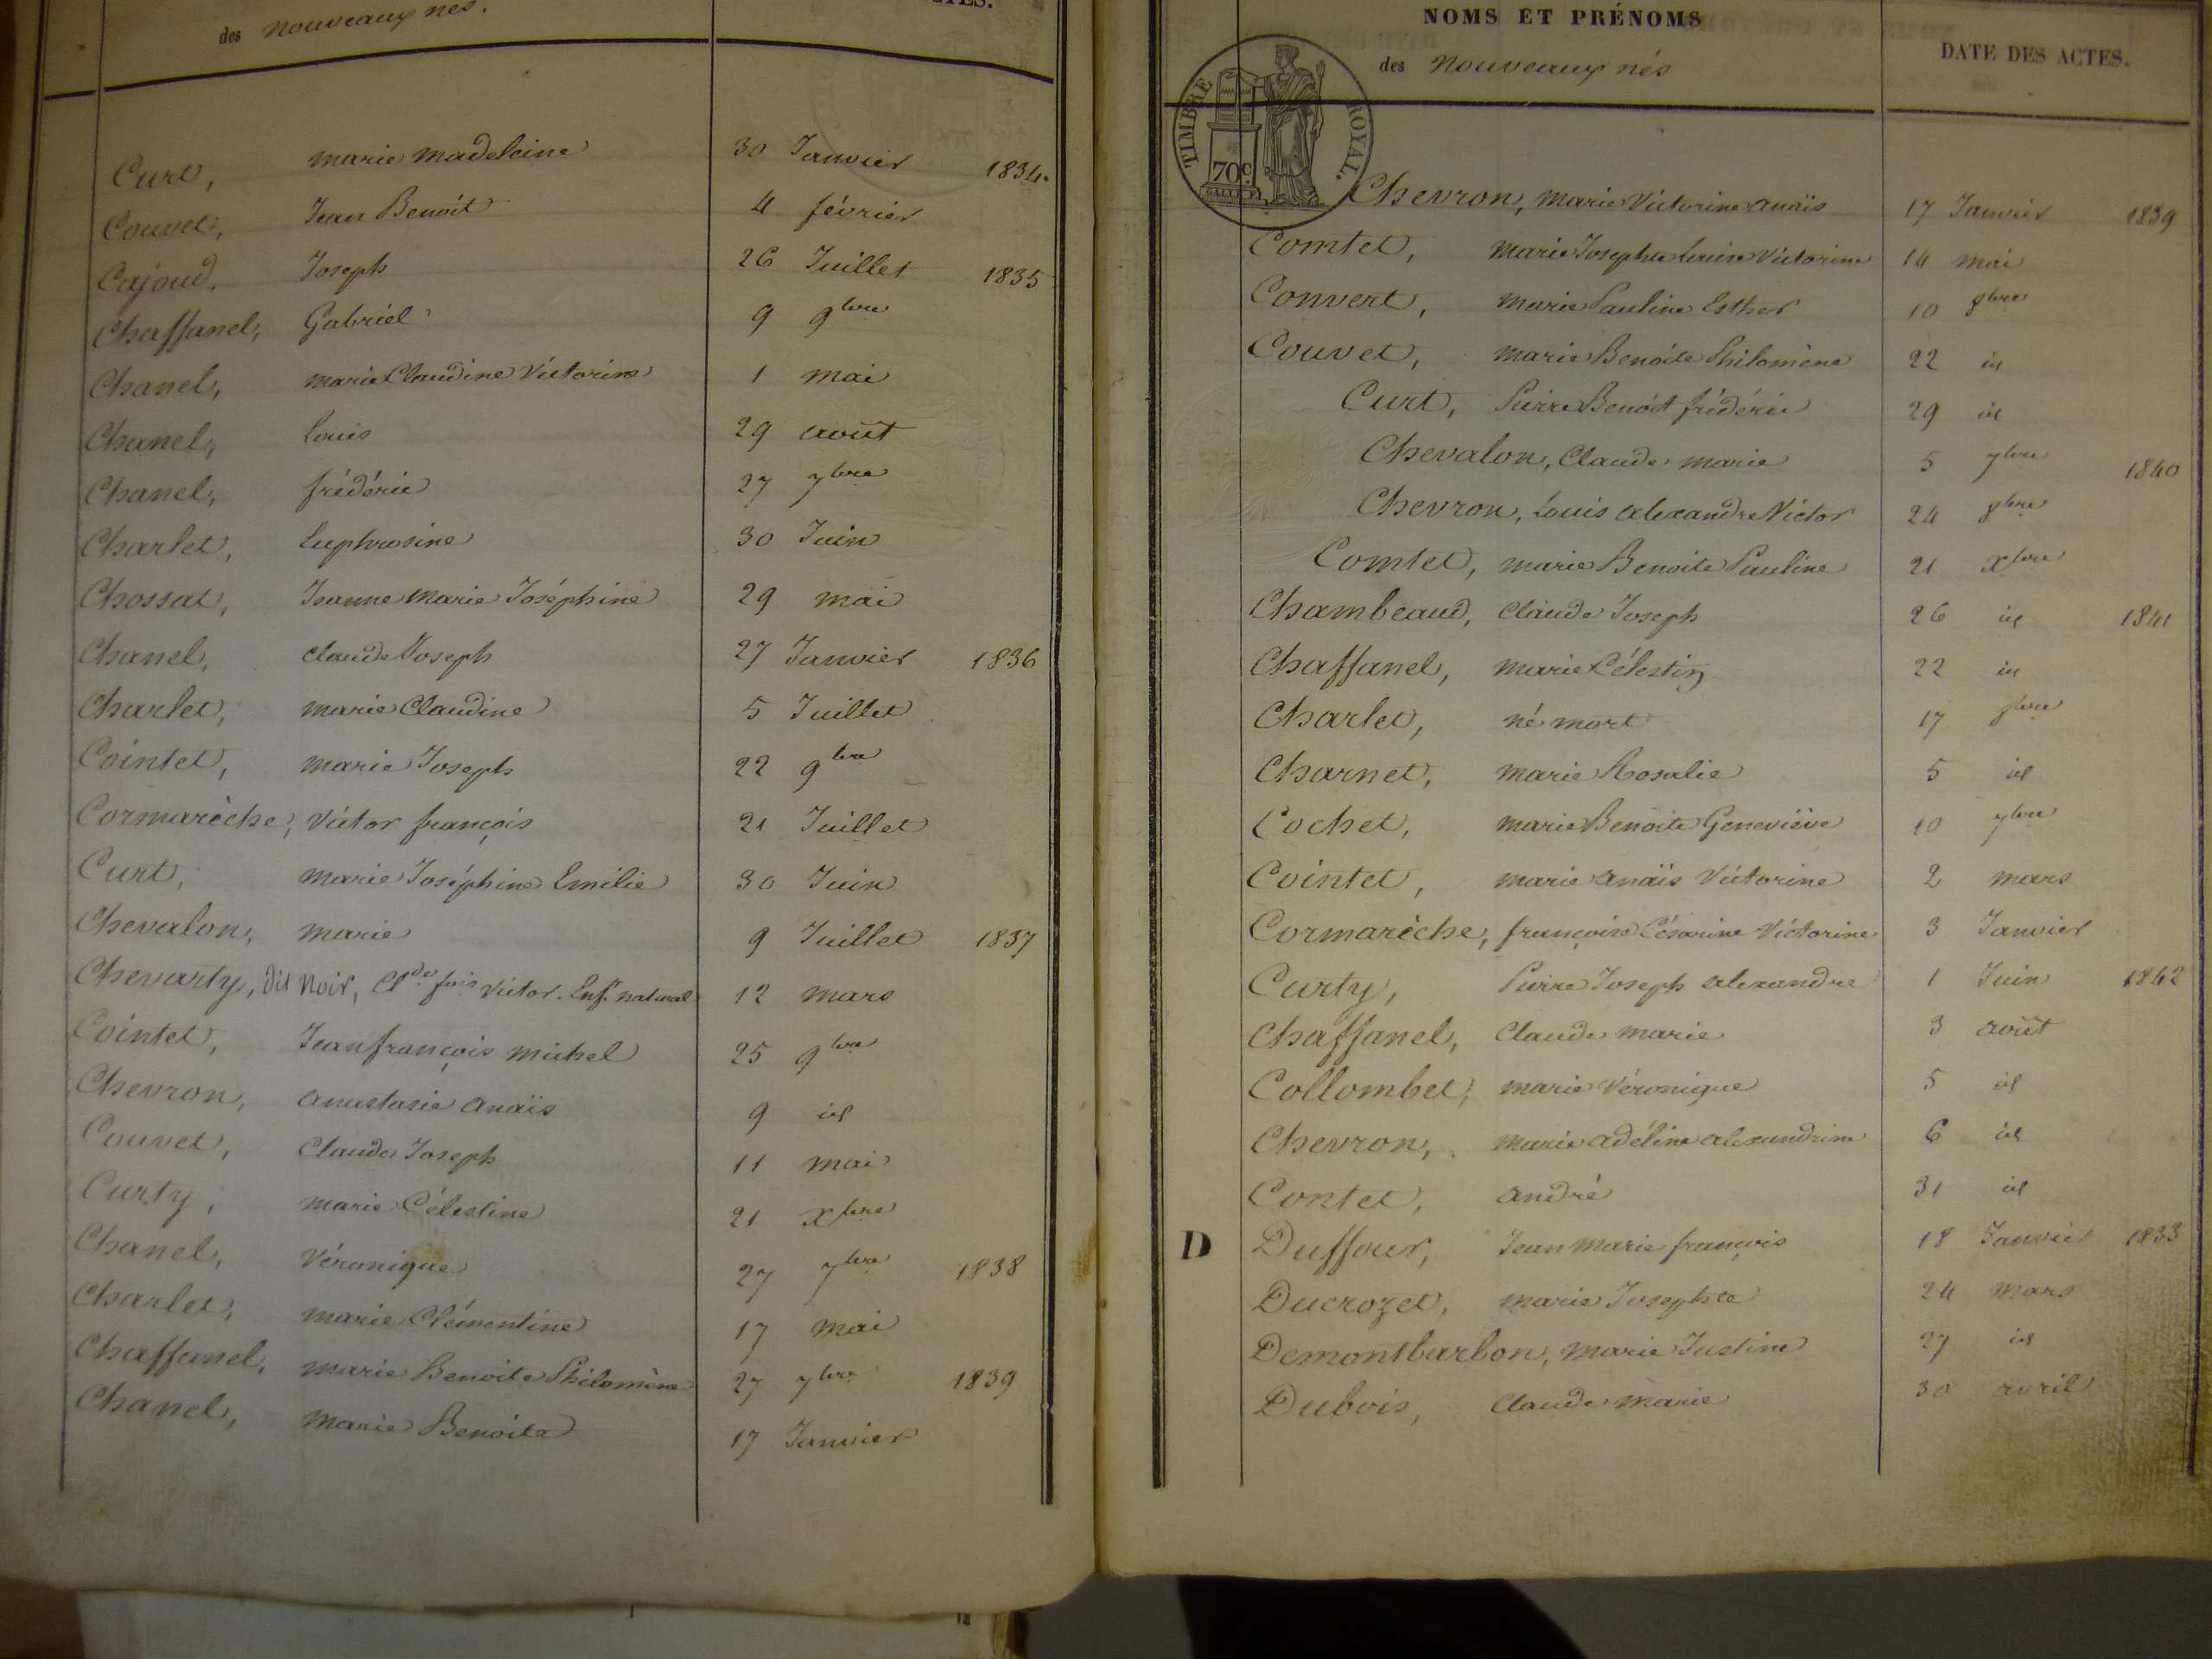 des nouveaux nés.
Curt, marie madeleine 30 Janvier 1834.
Couvet, Jean Benoit 4 février
Cajoud, Joseph 26 Juillet 1835
Chaffanel, Gabriel 9 9bre
Chanel, marie Claudine Victorine 1 mai
Chanel, louis 29 août
Chanel, frédéric 27 7bre
Charlet, Euphrosine 30 Juin
Chossat, Jeanne marie Joséphine 29 mai
Chanel, claude Joseph 27 Janvier 1836
Charlet, marie Claudine 5 Juillet
Cointet, marie Joseph 22 9bre
Cormarèche, Victor françois 21 Juillet
Curt, marie Joséphine Emilie 30 Juin
Chevalon, marie 9 Juillet 1837
Chevarty, dit Noir, Clde fois Victor. Enft naturel 12 mars
Cointet, Jean françois michel 25 9bre
Chevron, anastasie anaïs 9 id
Couvet, Claude Joseph 11 mai
Curty, marie Célestine 21 xbre
Chanel, Véronique 27 7bre 1838
Charlet, marie Clémentine 17 mai
Chaffanel, marie Benoite Philomène 27 7bre 1839
Chanel, marie Benoite 17 Janvier
NOMS ET PRÉNOMS
des nouveaux nés
DATE DES ACTES.
TIMBRE ROYAL.
70c.
Chevron, marie Victorine anaïs 17 Janvier 1839
Comtet, marie Josephte louise Victorine 14 mai
Convert, marie Pauline Esther 10 8bre
Couvet, marie Benoite Philomène 22 id
Curt, Pierre Benoit frédéric 29 id
Chevalon, Claude marie 5 7bre 1840
Chevron, Louis alexandre Victor 24 8bre
Comtet, marie Benoite Pauline 21 xbre
Chambeaud, Claude Joseph 26 id 1841
Chaffanel, marie Célestin 22 id
Charlet, né mort 17 8bre
Charnet, marie Rosalie 5 id
Cochet, marie Benoite Geneviève 10 7bre
Cointet, marie anaïs Victorine 2 mars
Cormarèche, françoise Césarine Victorine 3 Janvier
Curty, Pierre Joseph alexandre 1 Juin 1842
Chaffanel, Claude marie 3 août
Collombet, marie Véronique 5 id
Chevron, marie adéline alexandrine 6 id
Contet, andré 31 id
D Duffour, Jean marie françois 18 Janvier 1833
Ducrozet, marie Josephte 24 mars
Demontbarbon, marie Justine 27 id
Dubois, Claude marie 30 avril